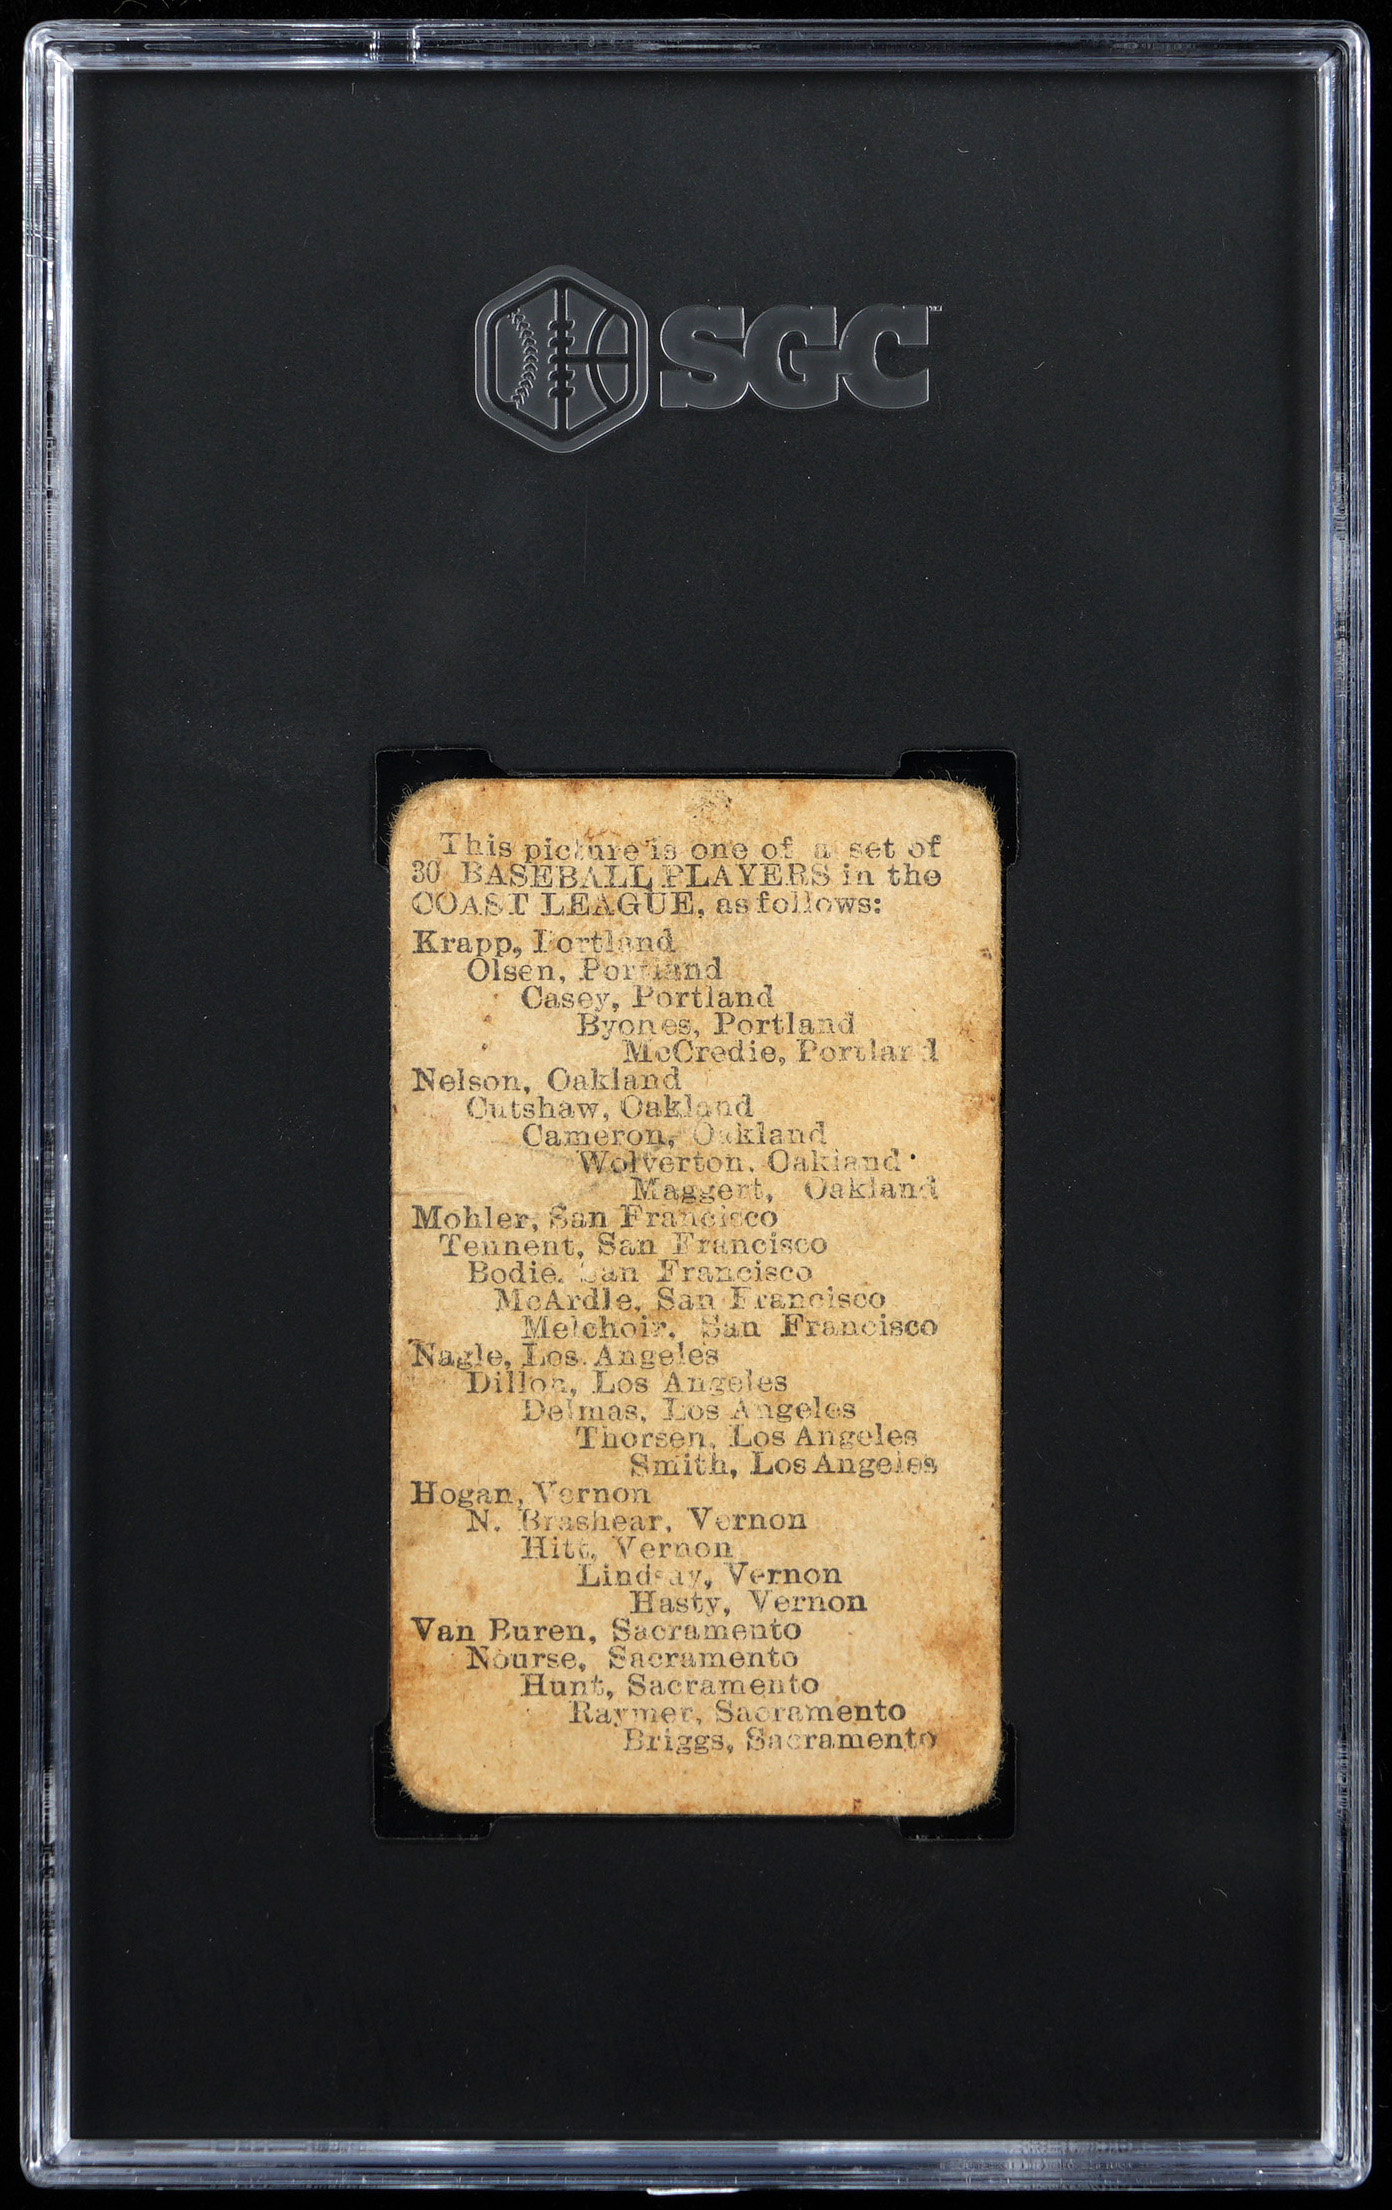 SGC™
This picture is one of a set of
30 BASEBALL PLAYERS in the
COAST LEAGUE, as follows:
Krapp, Portland
Olsen, Portland
Casey, Portland
Byones, Portland
McCredie, Portland
Nelson, Oakland
Cutshaw, Oakland
Cameron, Oakland
Wolverton, Oakland
Maggert, Oakland
Mohler, San Francisco
Tennent, San Francisco
Bodie, San Francisco
McArdle, San Francisco
Melchoir, San Francisco
Nagle, Los Angeles
Dillon, Los Angeles
Delmas, Los Angeles
Thorsen, Los Angeles
Smith, Los Angeles
Hogan, Vernon
N. Brashear, Vernon
Hitt, Vernon
Lindsay, Vernon
Hasty, Vernon
Van Buren, Sacramento
Nourse, Sacramento
Hunt, Sacramento
Raymer, Sacramento
Briggs, Sacramento